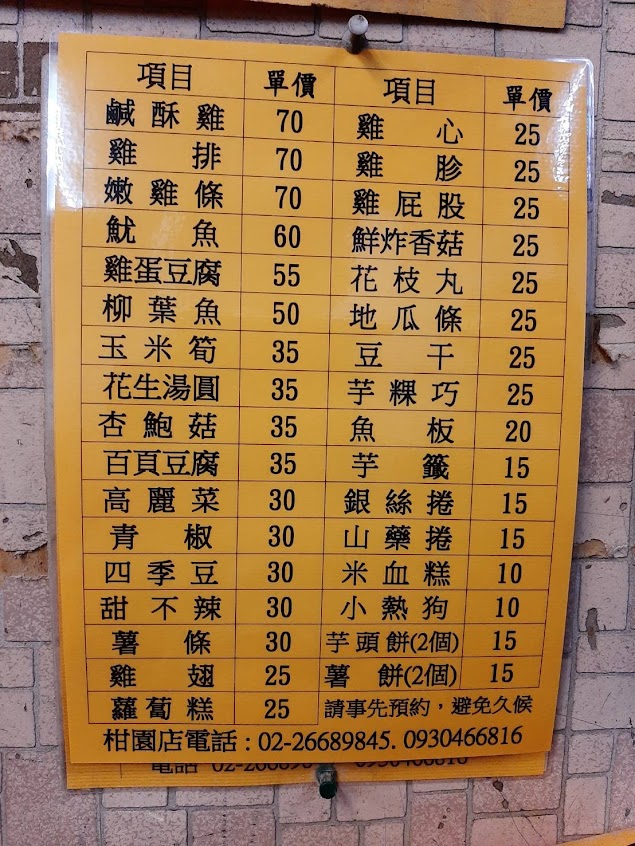 項目 單價 項目 單價
鹹酥雞 70 雞心 25
雞排 70 雞胗 25
嫩雞條 70 雞屁股 25
魷魚 60 鮮炸香菇 25
雞蛋豆腐 55 花枝丸 25
柳葉魚 50 地瓜條 25
玉米筍 35 豆干 25
花生湯圓 35 芋粿巧 25
杏鮑菇 35 魚板 20
百頁豆腐 35 芋籤 15
高麗菜 30 銀絲捲 15
青椒 30 山藥捲 15
四季豆 30 米血糕 10
甜不辣 30 小熱狗 10
薯條 30 芋頭餅(2個) 15
雞翅 25 薯餅(2個) 15
蘿蔔糕 25 請事先預約，避免久候
柑園店電話：02-26689845. 0930466816
電話 02-266898 0930466816